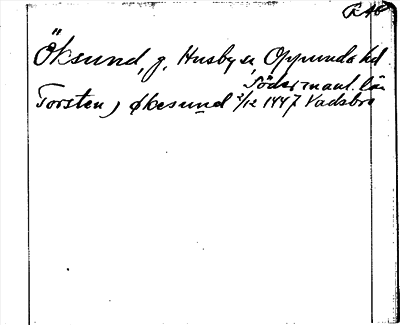 RAp
Öksund, g. Husby sn Oppunda hd
Södermanl. län
Torsten j økesund 2/12 1447 Vadsbro